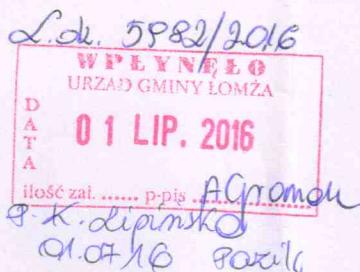 L.dz. 5982/2016
WPŁYNĘŁO
URZĄD GMINY ŁOMŻA
DATA
01 LIP. 2016
ilość zał. ...... p-pis ..................
P. K. Lipińska
01.07.16